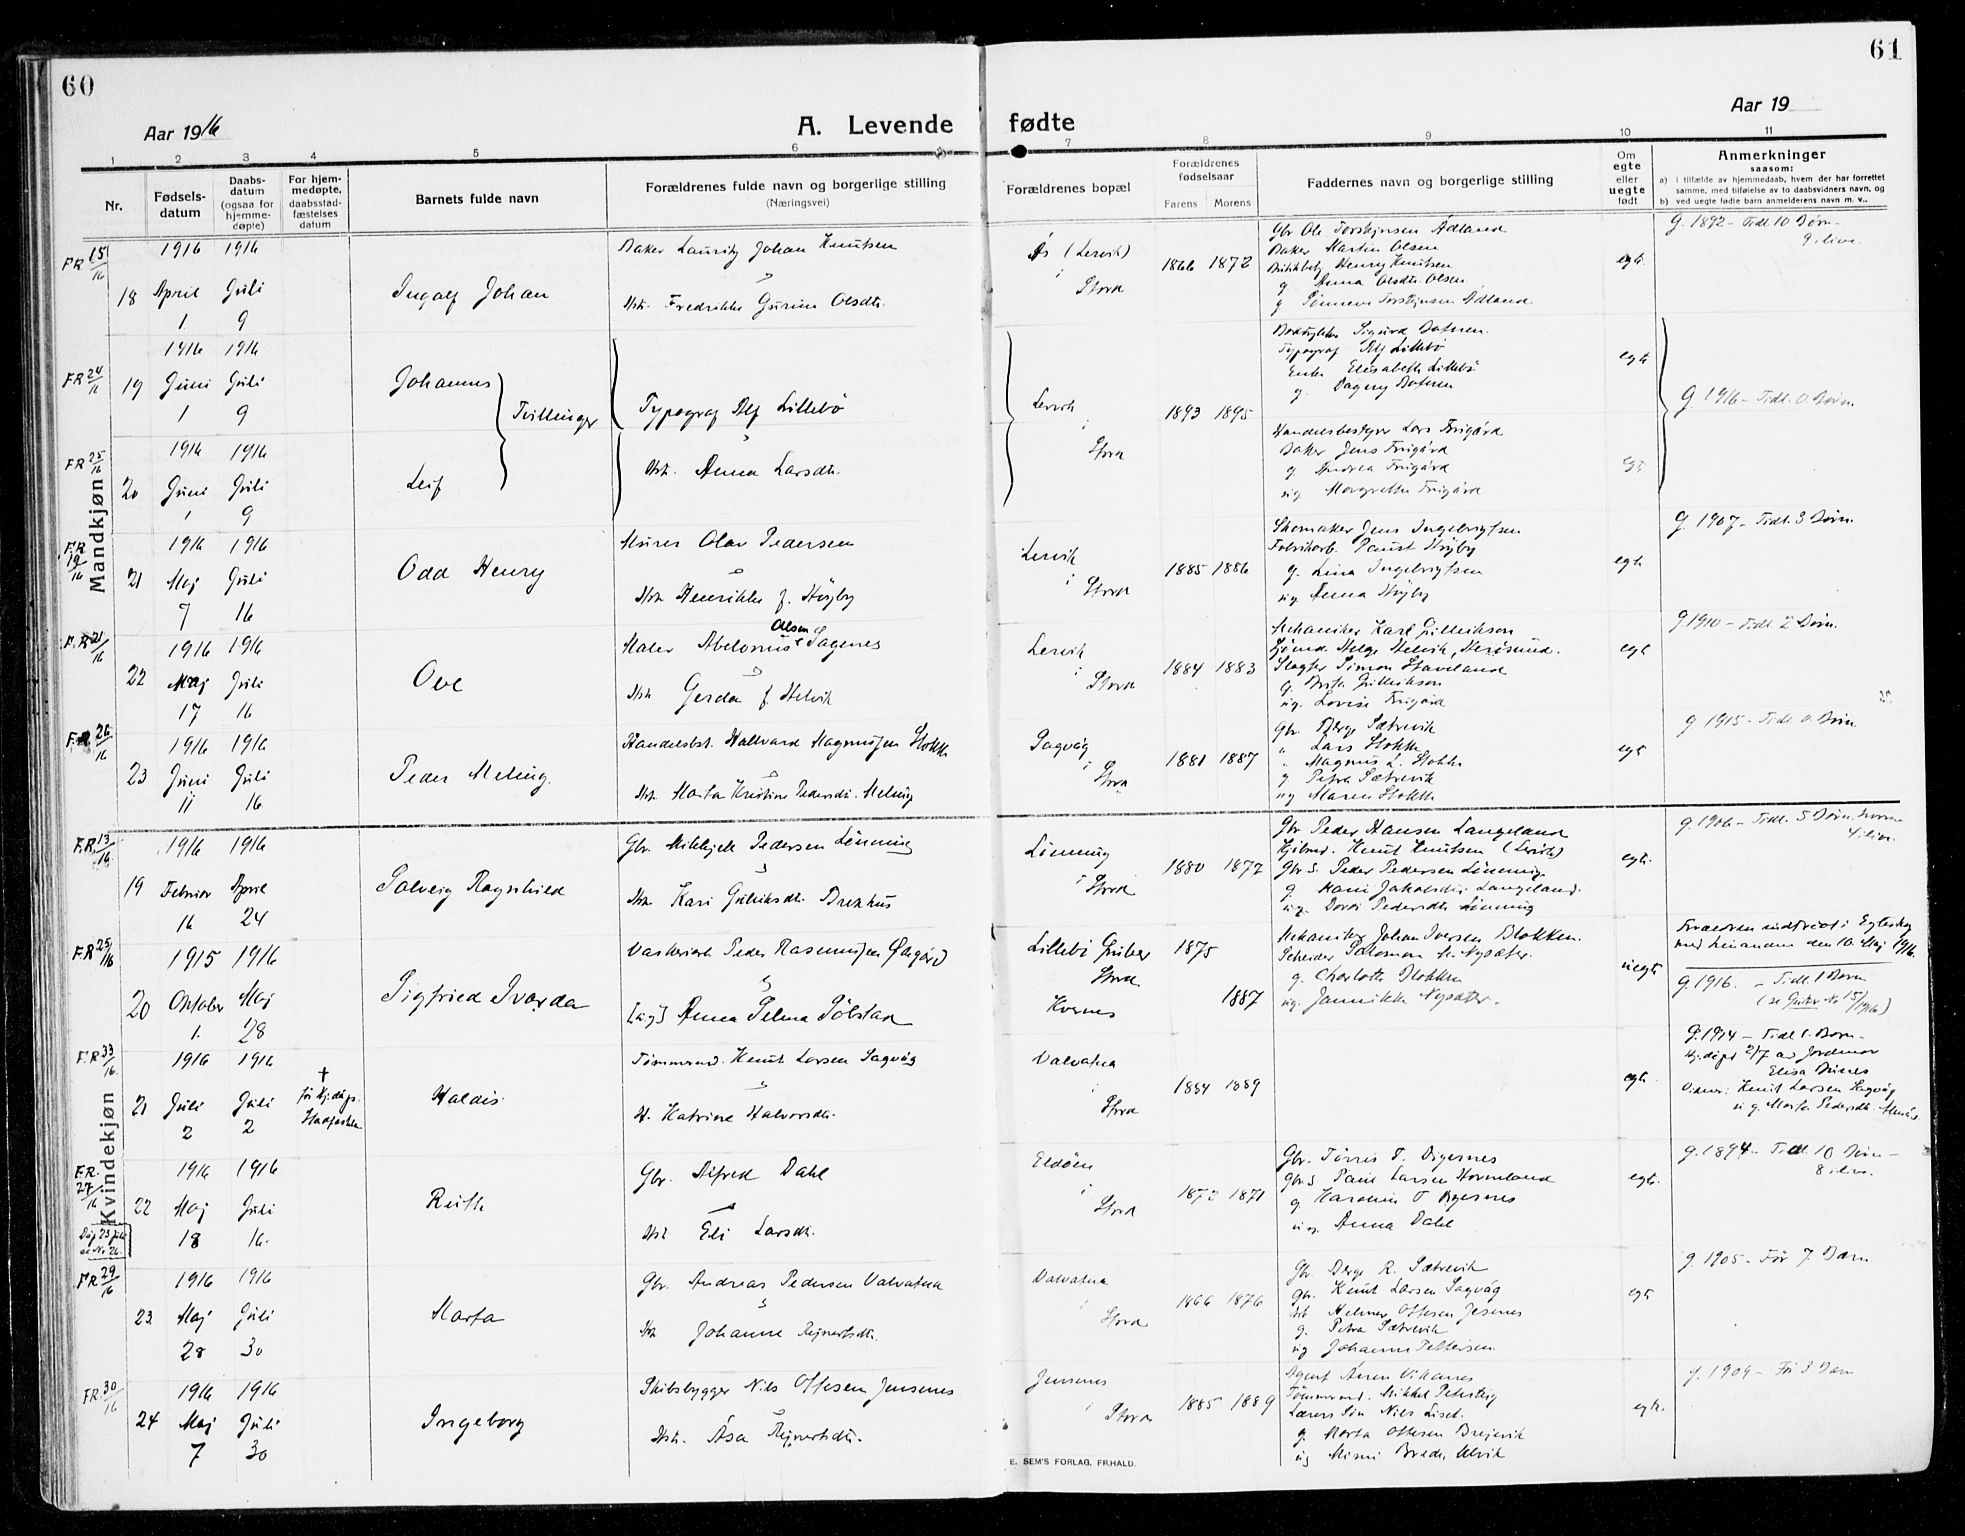 60
61
Aar 1916
A. Levende fødte
Aar 19
1 2 3 4 5 6 7 8 9 10 11
Nr.
Fødsels-
datum
Daabs-
datum
(ogsaa for
hjemme-
døpte)
For hjem-
medøpte,
daabsstad-
fæstelses
datum
Barnets fulde navn
Forældrenes fulde navn og borgerlige stilling
(Næringsvei)
Forældrenes bopæl
Forældrenes
fødselsaar
Farens Morens
Faddernes navn og borgerlige stilling
Om
egte
eller
uegte
født
Anmerkninger
saasom:
a) i tilfælde av hjemmedaab, hvem der har forrettet
samme, med tilføielse av to daabsvidners navn, og
b) ved uegte fødte barn anmelderens navn m. v..
Mandkjøn
FR 15/16
18
1916 April 1
1916 Juli 9
Ingolf Johan
Baker Lauritz Johan Knutsen
Hst. Fredrikke Gurine Olsdtr.
Ås (Lervik)
i Stord
1866 1872
Gbr Ole Torstejnsen Ådland
Baker Martin Olsen
Henry Knutsen
g Anna Olsdtr Olsen
g Sønneva Torstejnsen Ådland
egte
g. 1892 - Tidl 10 Børn-
9 i live.
FR 24/16
19
1916 Juni 1
1916 Juli 9
Johannes
Tvillinger
Typograf Alf Lillebø
Hst. Anna Larsdtr.
Lervik
i Stord
1893 1895
Sigurd
Typograf Alf Lillebø
Enke Elisabeth Lillebø
g. Dagny
egte
g 1916 - Tidl. 0 Børn.
FR 25/16
20
1916 Juni 1
1916 Juli 9
Leif
Handelsbestyrer Lars Frugård
Baker Jens Frugård
g. Andrea Frugård
ug. Margrethe Frugård
F.R 19/16
21
1916 Maj 7
1916 Juli 16
Odd Henry
Murer Olav Pedersen
Hst Henrikke f. Højby
Lervik
i Stord
1885 1886
Skomaker Jens Ingebrigtsen
Fabrikarb. Paust Højby
g. Lina Ingebrigtsen
ug. Anna Højby
egte
g. 1907 - Tidl. 3 Børn.
F.R 21/16
22
1916 Maj 17
1916 Juli 16
Ove
Maler Abelonius Olsen Sagenes
Hst Gerda f. Helvik
Lervik
i Stord
1884 1883
Mekaniker Karl Gullikson
Sjømd. Helge Helvik, Herøsund.
Slagter Simon Staveland
g. Brita Gullikson
ug. Lovise Frugård
egte
g. 1910 - Tidl 2 Børn.
F.R 26/16
23
1916 Juni 11
1916 Juli 16
Peder Meling.
Handelsbst. Hallvard Magnussen Stokke
Hst. Marta Kristine Pedersdtr. Meling
Sagvåg
i Stord
1881 1887
Gbr. Berge Sætrevik
" Lars Stokke
" Magnus L. Stokke
g Petra Sætrevik
ug Maren Stokke
egte
g 1915 - Tidl 0 Børn
Kvindekjøn
F.R. 13/16
19
1916 Februar 16
1916 April 24
Solveig Ragnhild
Gbr. Mikkjell Pedersen Lønning
Hst Kari Gulliksdtr. Brekhus
Lønning
i Stord
1880 1877
Gbr Peder Hansen Langeland
Kjøbmd. Knut Knutsen (Lervik)
Gbr S. Peder Pedersen Lønning
g. Kari Jakobsdtr. Langeland.
ug. Dordi Pedersdtr Lønning
egte.
g. 1906 - Tidl. 5 Børn, hvorav
4 i live.
F.R 25/16
20
1915 Oktober 1.
1916 Maj 28
Sigfried Svarda
Vaskeriarb Peder Rasmussen
[ug] Anna Selma Sølstad
Lillebø Gruber
Stord
Hornes
1875
1887
Mekaniker Johan Iversen Blokken.
Skredder Salomon Nysæter.
g. Charlotte Blokken
ug. Jannikke Nysæter.
uegte
Forældrene indtraadt i Egteskab
med hinanden den 10 Maj 1916.
g. 1916. - Tidl. 1 Barn
F.R 33/16
21
1916 Juli 2
1916 Juli 2
†
Haldis
Tømmermd. Knut Larsen Sagvåg
H. Katrine Halvorsdtr.
Valvatna
i Stord
1884 1889
egte.
g. 1914 - Tidl. 1. Barn-
Hj.døpt 2/7 av Jordmor
Elisa
Vidner: Knut Larsen Sagvåg
F.R. 27/16
22
1916 Maj 18
1916 Juli 16.
Ruth
Gbr. Alfred Dahl
Hst Eli Larsdtr.
Eldøen
i Stord
1872 1871
Gbr. Tørris T. Digernes
Gbr. S. Paul Larsen Hovneland
g. Karoline T Digernes
ug. Anna Dahl
egte.
g. 1894 - Tidl 10 Børn -
8 i live.
FR 29/16
23
1916 Maj 28
1916 Juli 30
Marta
Gbr. Andreas Pedersen Valvatna
Hst Johanne Rejnertsdtr.
Valvatna
i Stord
1866 1876
Gbr Berge R. Sætrevik
gbr. Knut Larsen Sagvåg
Helmer Ottesen Jensenes
g. Petra Sætrevik
ug Johanne Pettersen
egte
g. 1905 - Før 7. Barn
FR. 30/16
24
1916 Maj 7
1916 Juli 30
Ingeborg
Skibsbygger Nils Ottesen Jensenes
Hst. Åsa Rejnertsdtr.
Jensenes
i Stord
1885 1889
Agent Vikanes
Tømmermd. Mikkel Petersteig
Lærers Søn Nils Liset.
g. Marta Ottesen Brejevik
ug Mimi Ulvik
egte.
g. 1909 - Før 3 Barn
E. SEM'S FORLAG, FR.HALD.